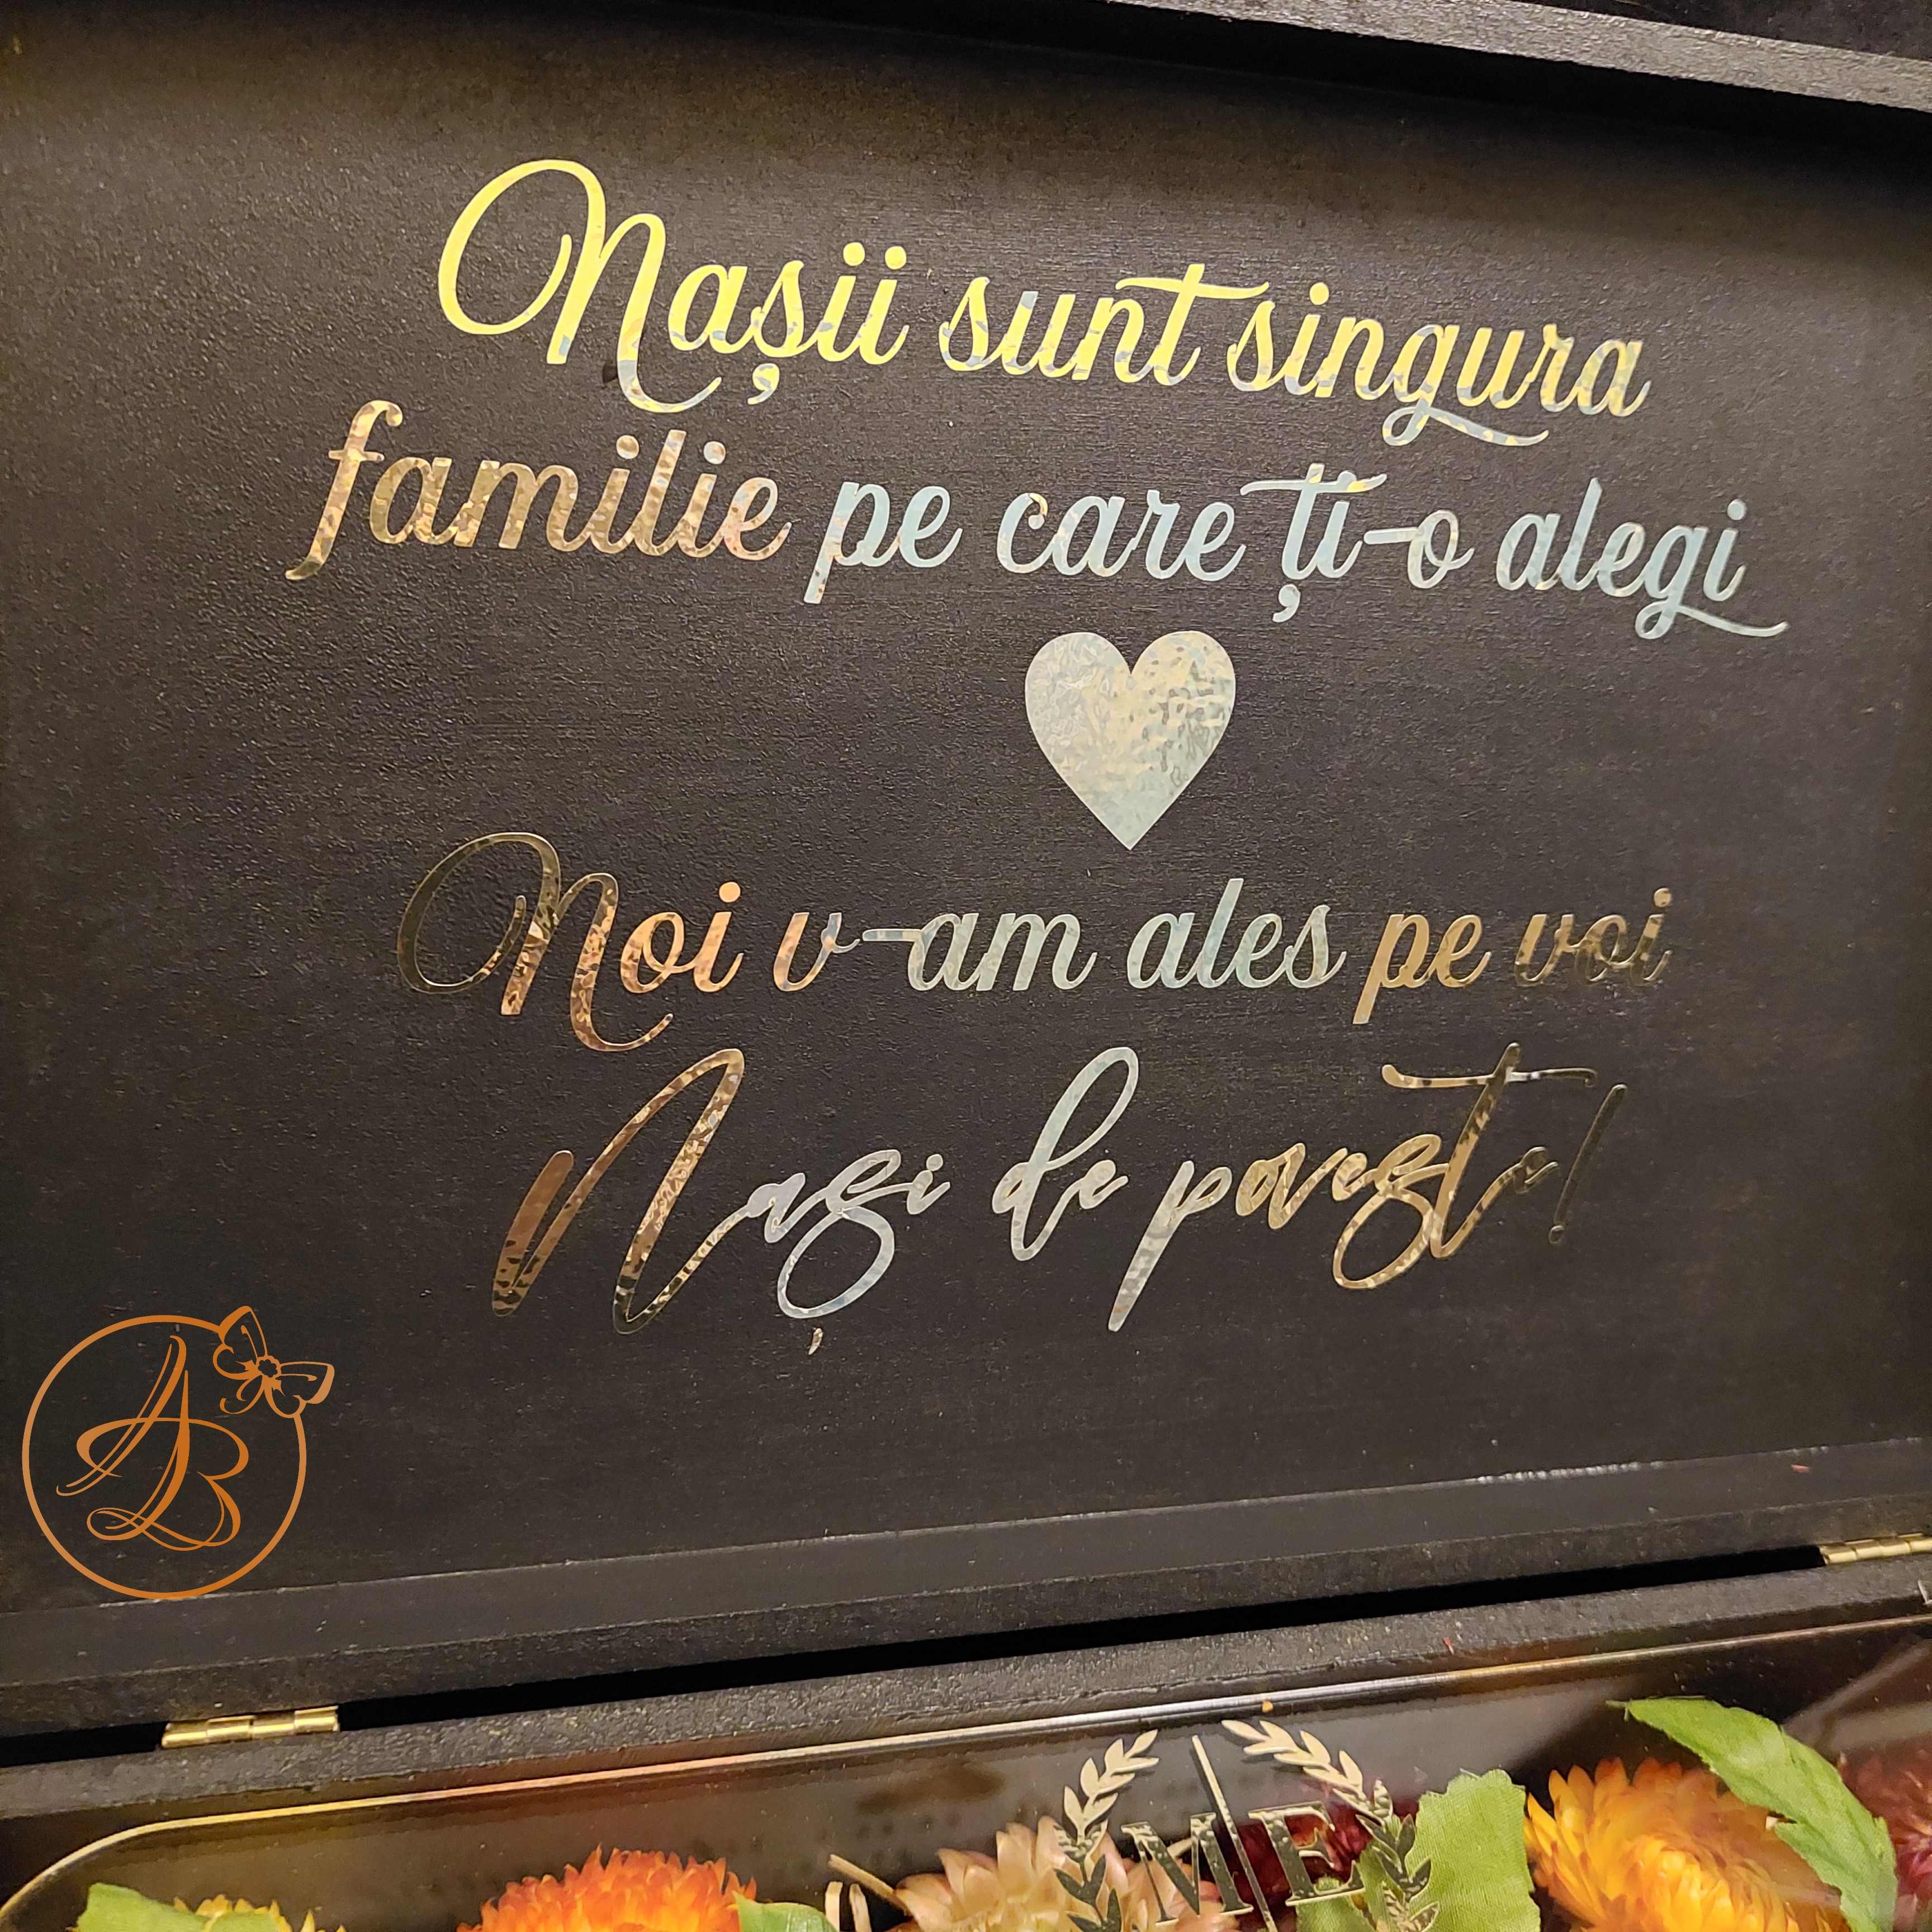 Nașii sunt singura
familie pe care ți-o alegi
Noi v-am ales pe voi
Nași de poveste!
AB
M|E